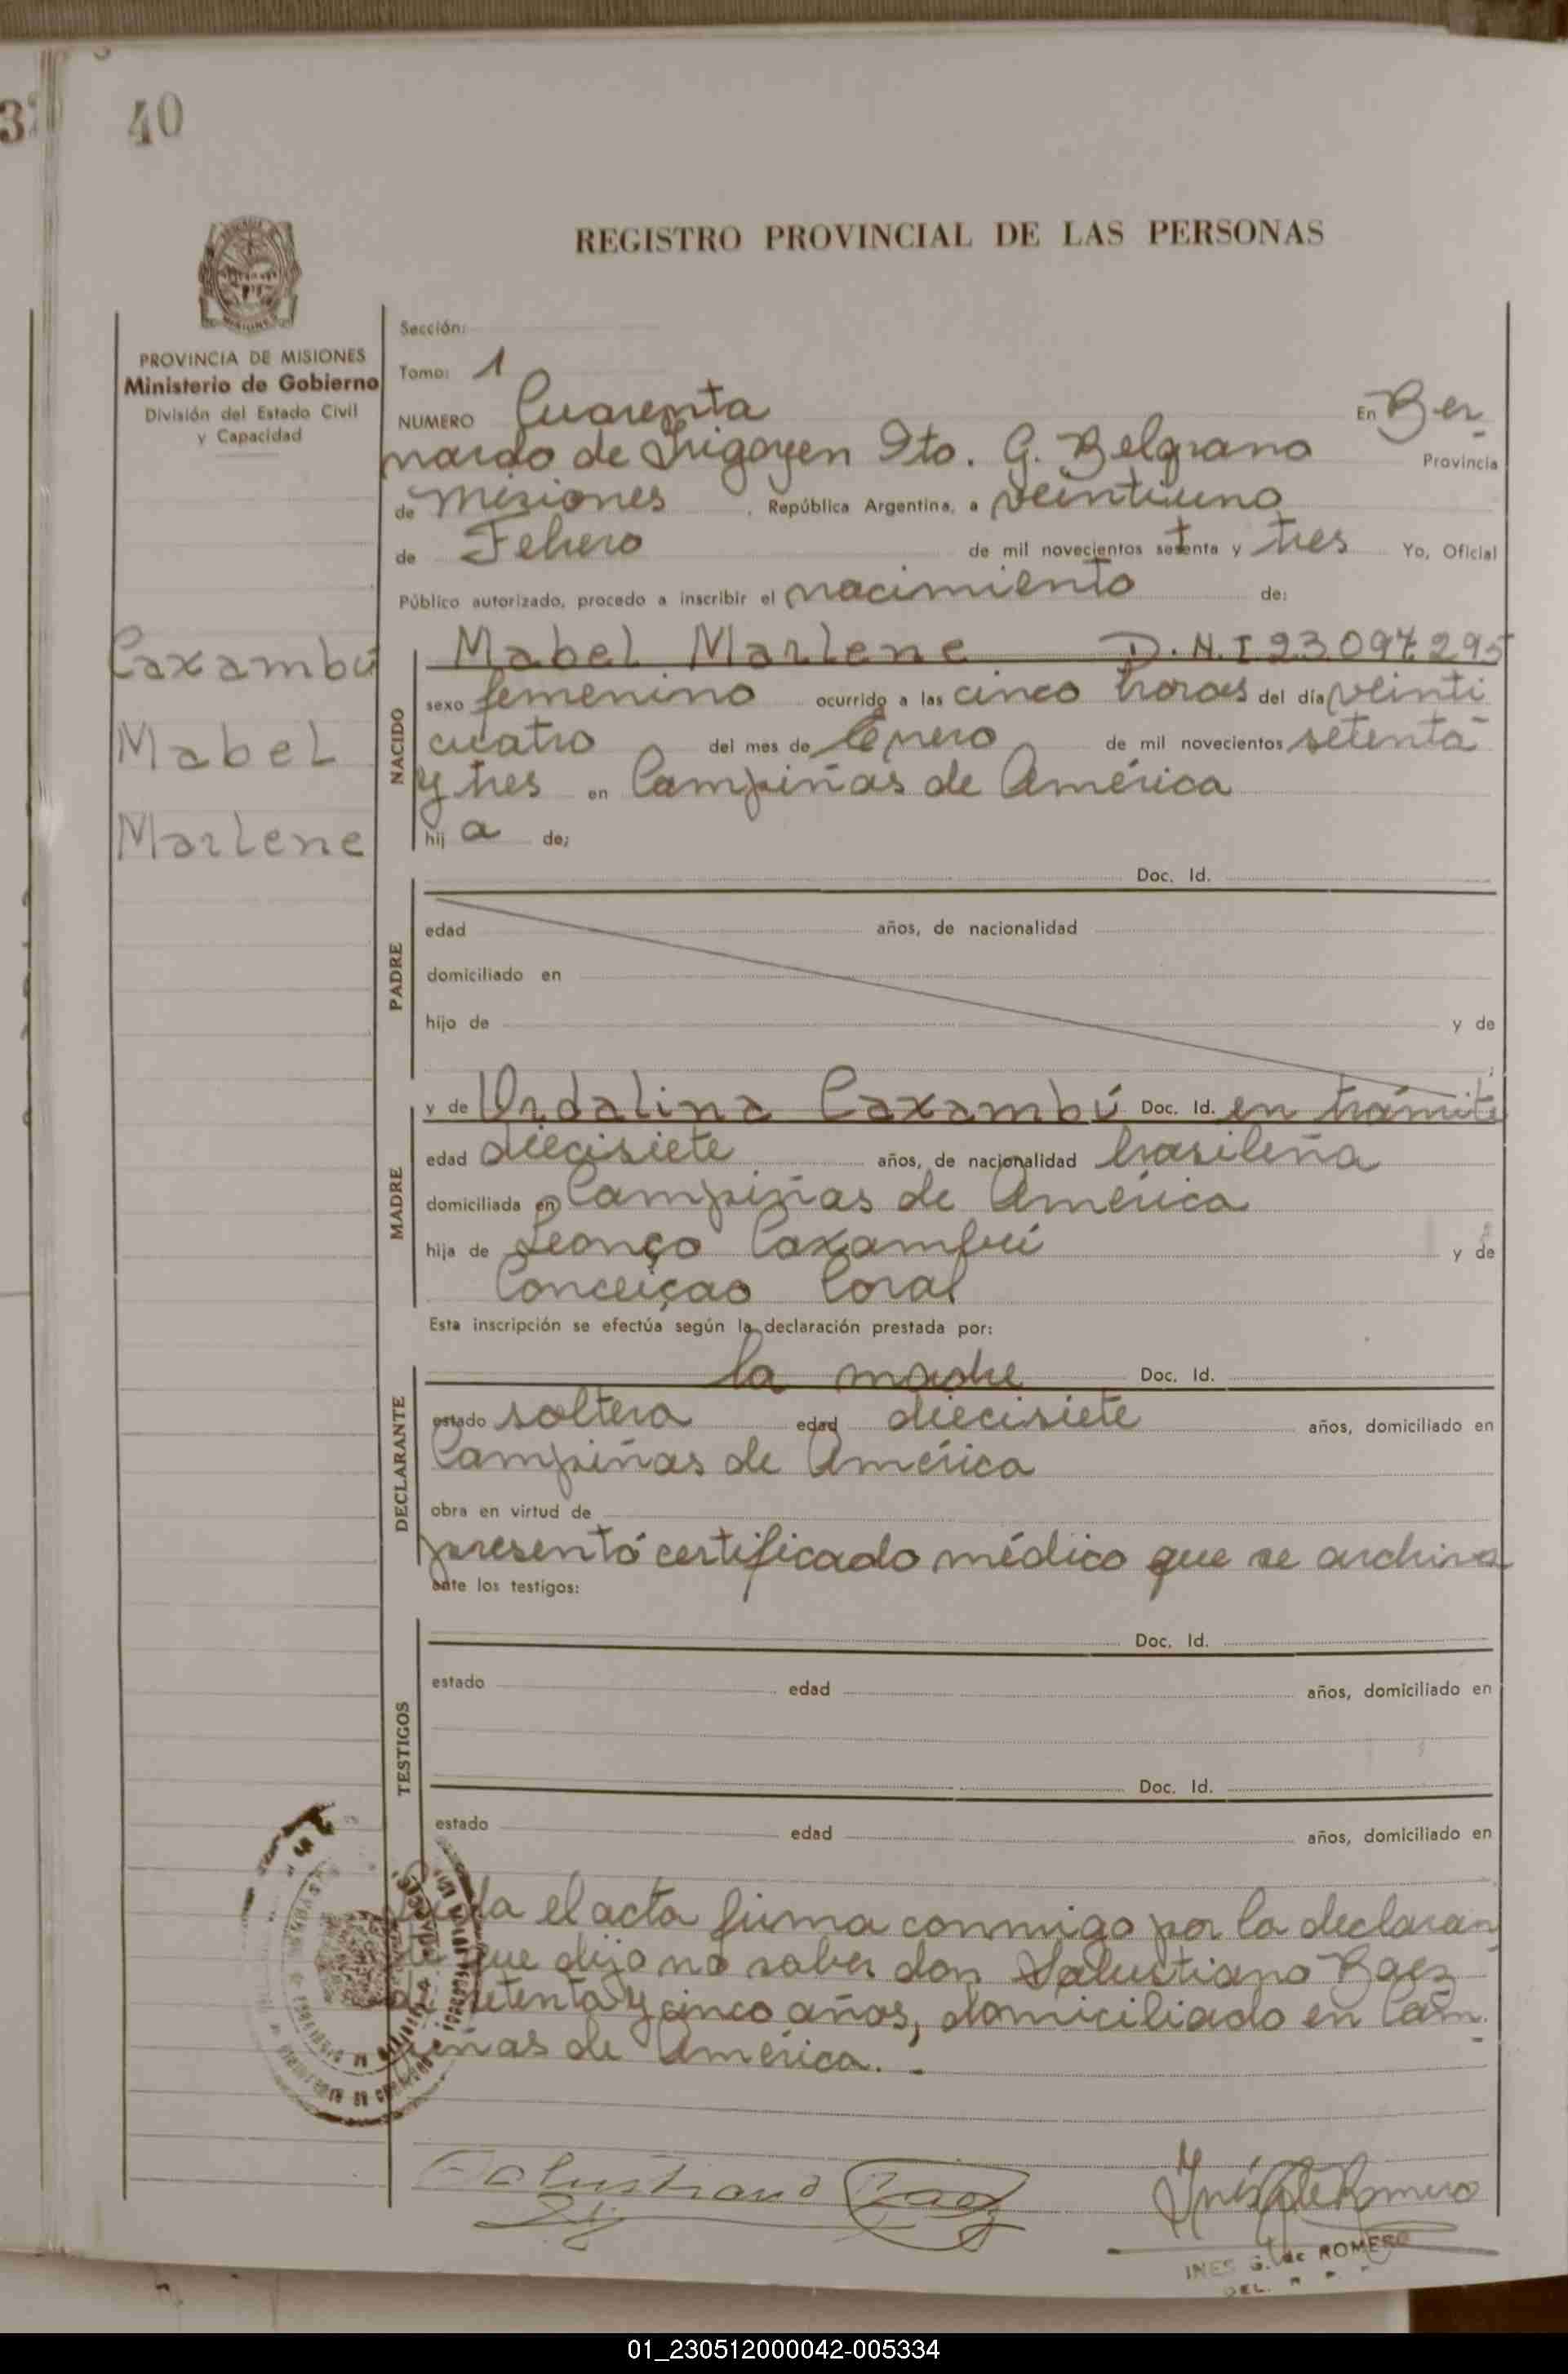 40
REGISTRO PROVINCIAL DE LAS PERSONAS
PROVINCIA DE MISIONES
Ministerio de Gobierno
División del Estado Civil
y Capacidad
Caxambú
Mabel
Marlene
Sección:
Tomo: 1
NUMERO Cuarenta En Ber-
nardo de Irigoyen Dto. G. Belgrano Provincia
de Misiones, República Argentina, a veintiuno
de Febrero de mil novecientos setenta y tres Yo, Oficial
Público autorizado, procedo a inscribir el nacimiento de:
NACIDO
Mabel Marlene D.N.I 23.097.295
sexo femenino ocurrido a las cinco horas del día veinti
cuatro del mes de Enero de mil novecientos setenta
y tres en Campiñas de América
hij a de;
PADRE
Doc. Id.
edad años, de nacionalidad
domiciliado en
hijo de y de
MADRE
y de Ordalina Caxambú Doc. Id. en trámite
edad diecisiete años, de nacionalidad brasileña
domiciliada en Campiñas de América
hija de Leonço Caxambú y de
Conceiçao Coral
Esta inscripción se efectúa según la declaración prestada por:
DECLARANTE
la madre Doc. Id.
estado soltera edad diecisiete años, domiciliado en
Campiñas de América
obra en virtud de
presentó certificado médico que se archiva
ante los testigos:
TESTIGOS
Doc. Id.
estado edad años, domiciliado en
Doc. Id.
estado edad años, domiciliado en
el acta firma conmigo por la declaran
te que dijo no saber don Salustiano Baez
de setenta y cinco años, domiciliado en Cam-
piñas de América.-
Salustiano Baez
Inés G. de Romero
INES G. de ROMERO
DEL.
01_230512000042-005334